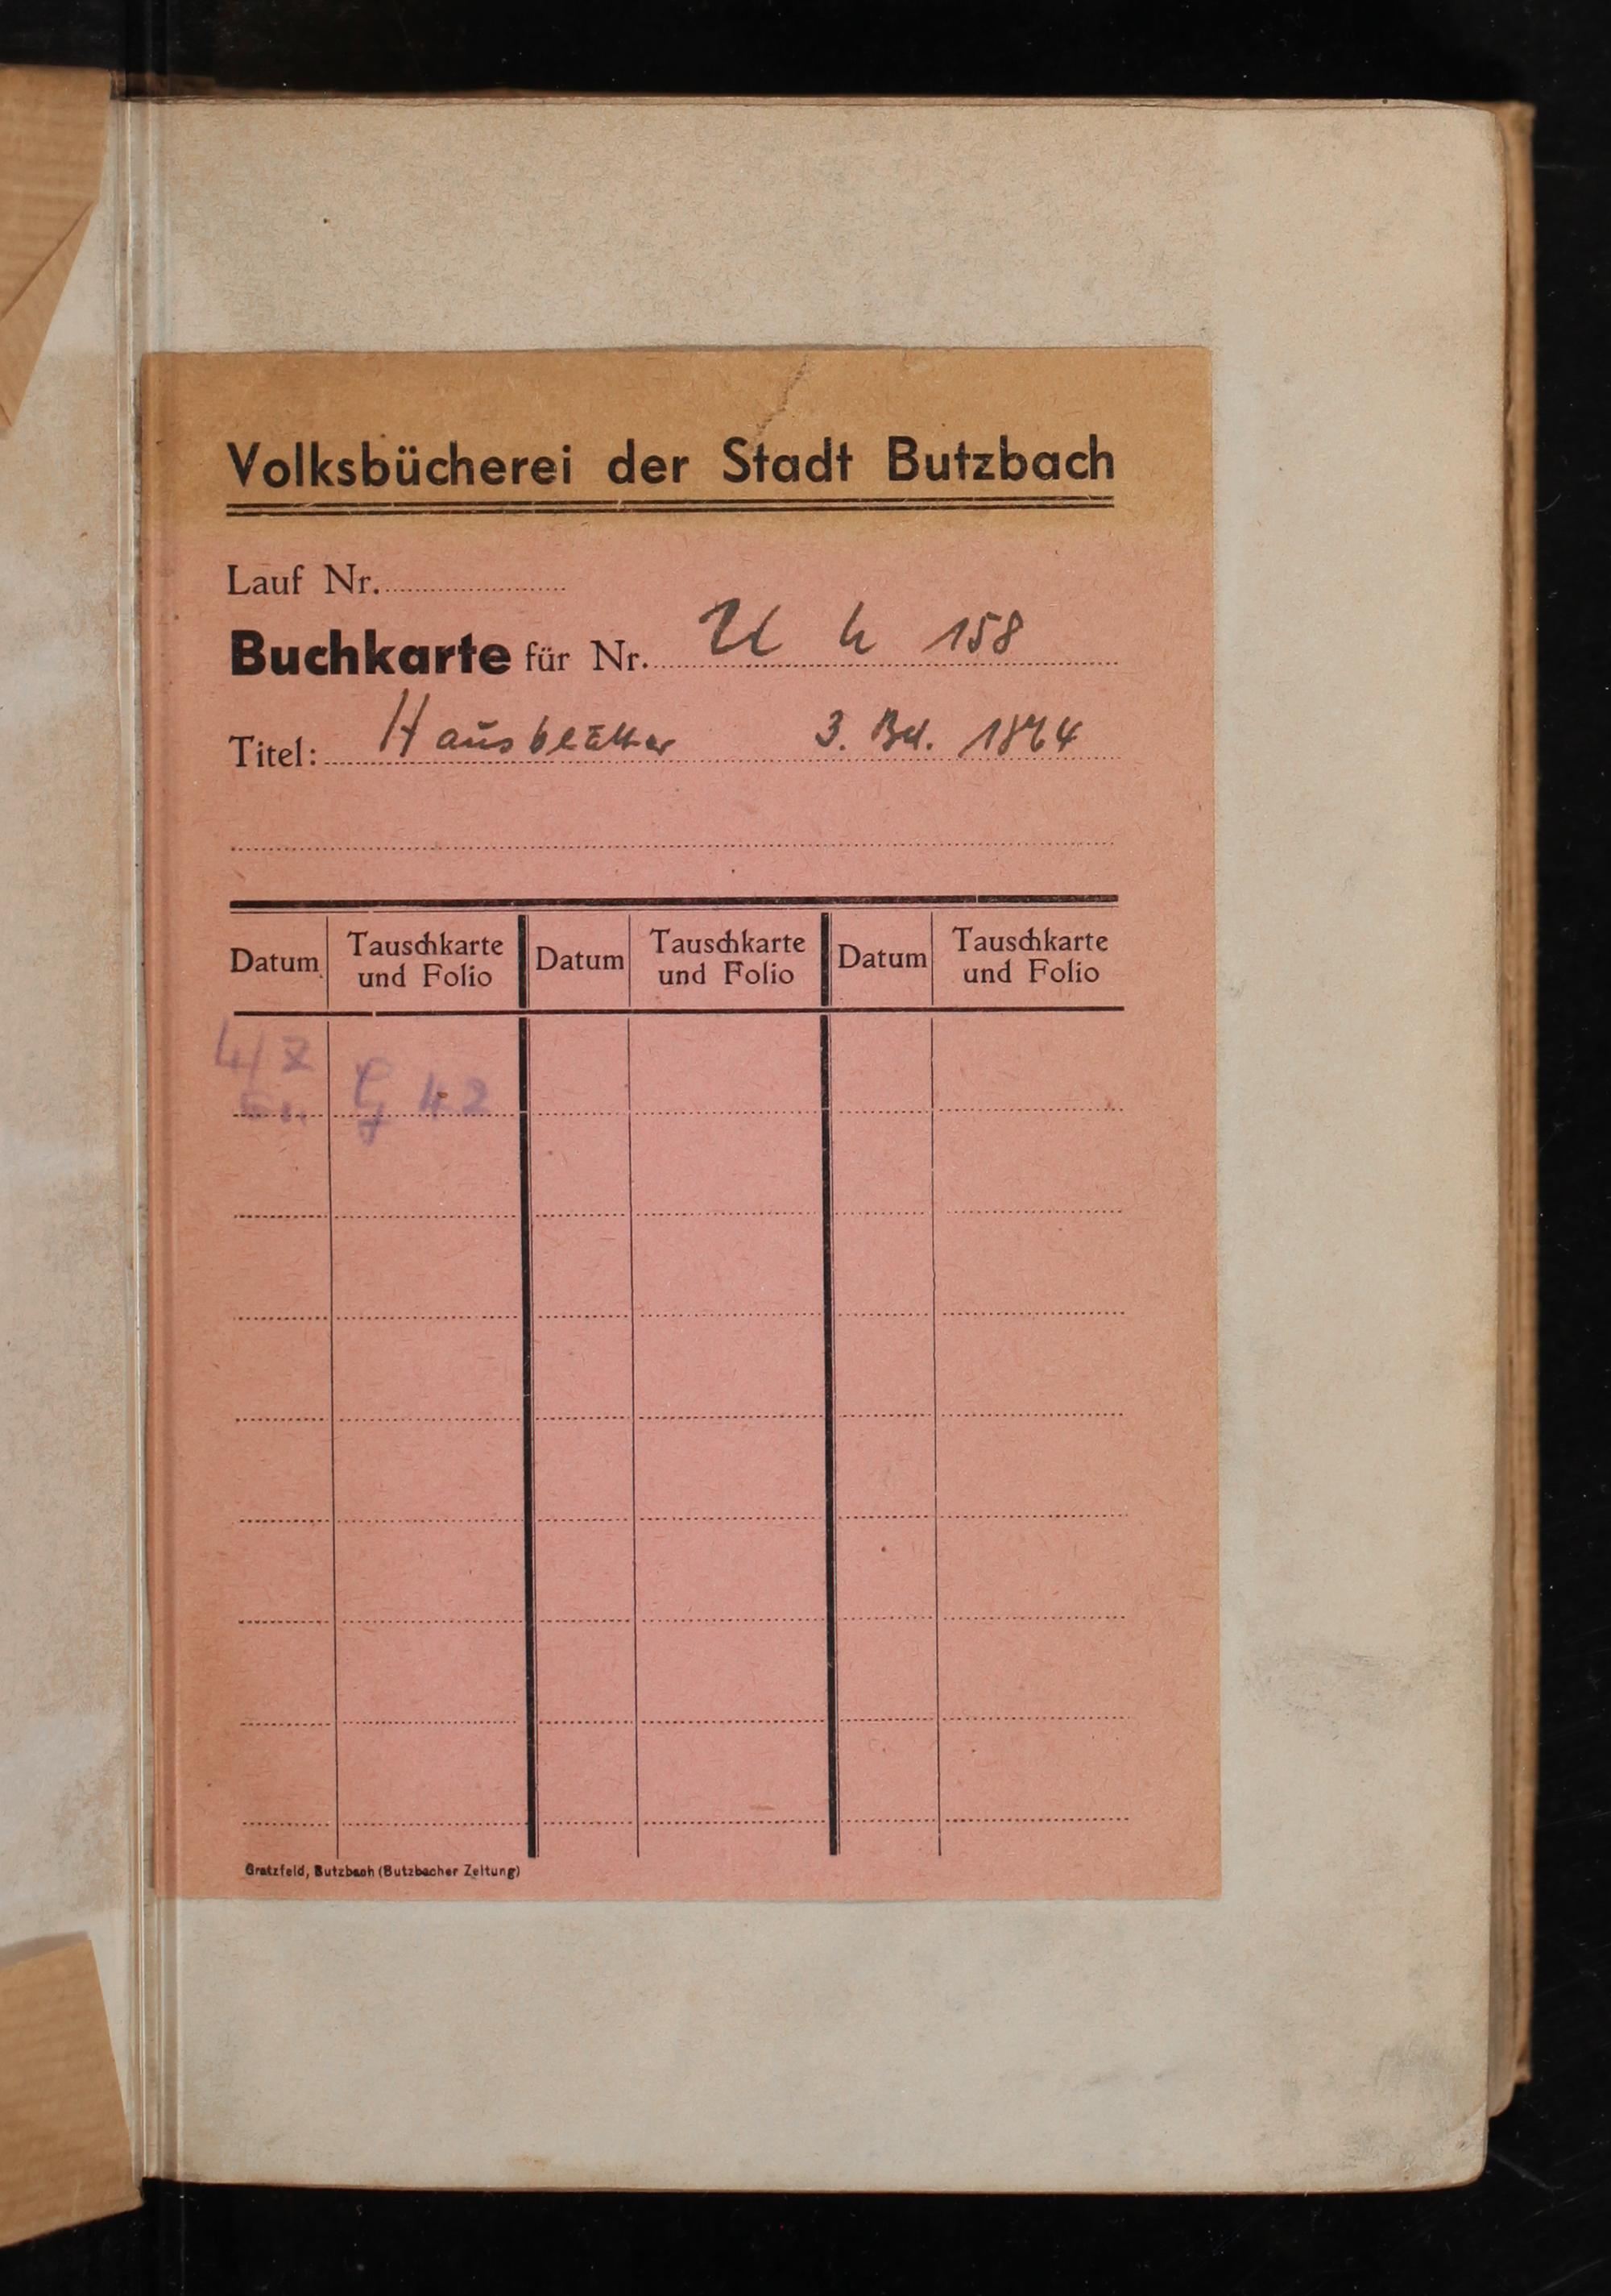 Volksbücherei der Stadt Butzbach
Lauf Nr.
Buchkarte für Nr. U h 158
Titel: Hausblätter 3. Bd. 1864
Datum Tauschkarte und Folio Datum Tauschkarte und Folio Datum Tauschkarte und Folio
42
Gratzfeld, Butzbach (Butzbacher Zeitung)